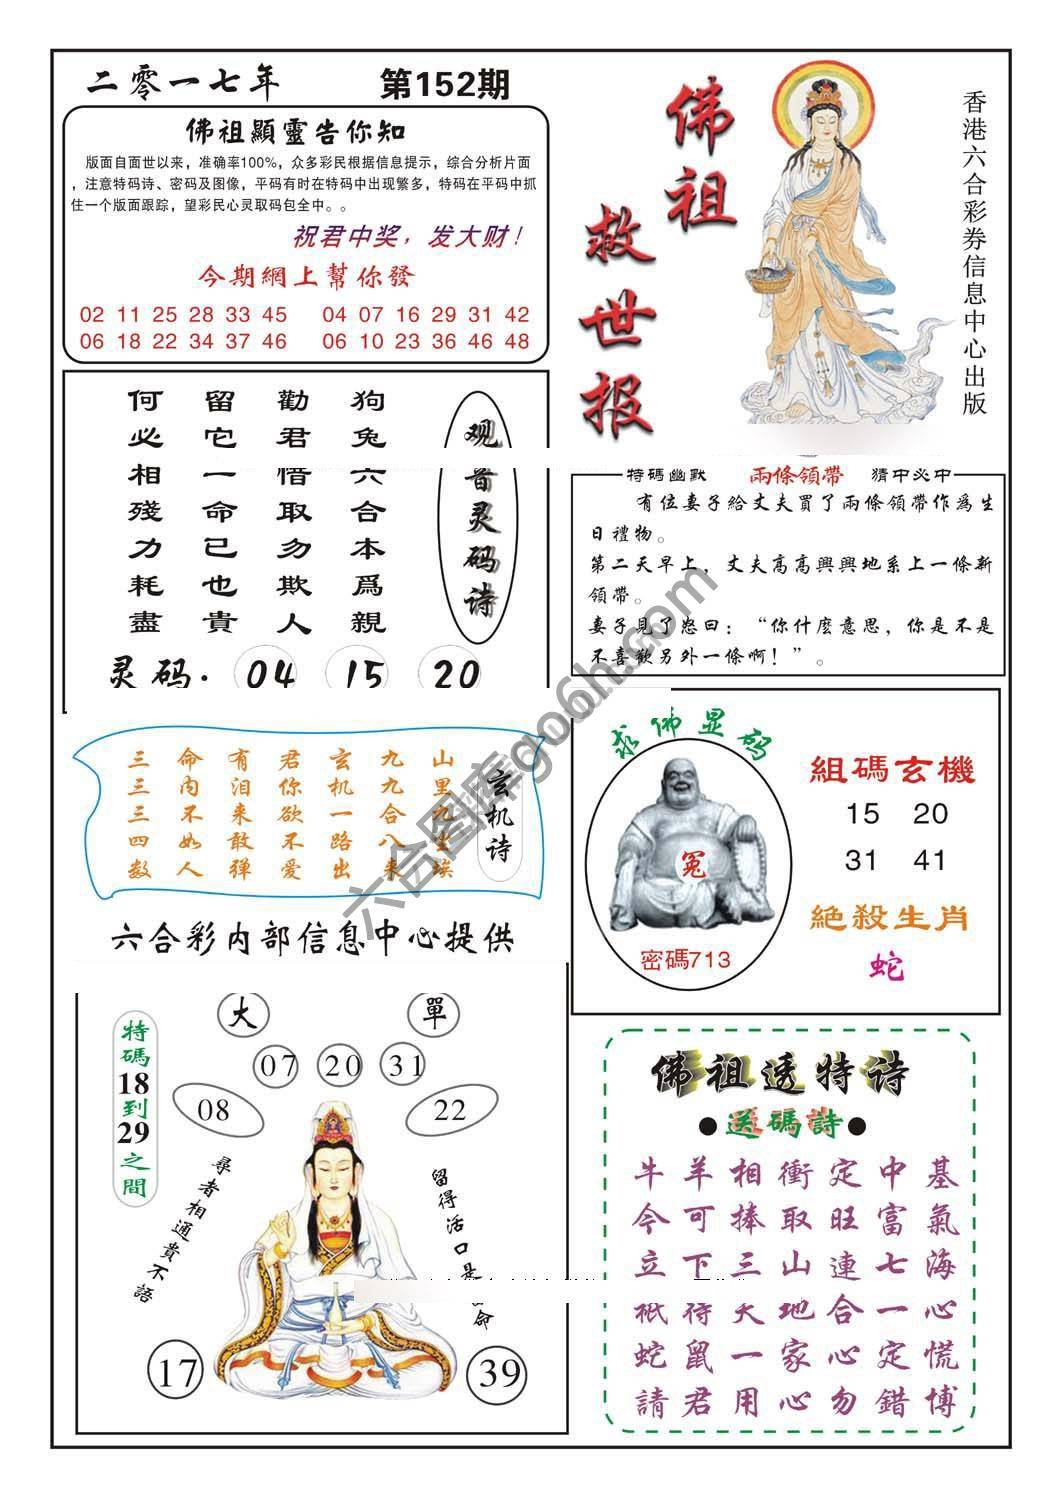 二零一七年 第152期
佛祖顯靈告你知
版面自面世以来，准确率100%，众多彩民根据信息提示，综合分析片面
，注意特码诗、密码及图像，平码有时在特码中出现繁多，特码在平码中抓
住一个版面跟踪，望彩民心灵取码包全中。。
祝君中奖，发大财！
今期網上幫你發
02 11 25 28 33 45 04 07 16 29 31 42
06 18 22 34 37 46 06 10 23 36 46 48
佛祖
救世报
香港六合彩券信息中心出版
观音灵码诗
狗兔六合本爲親
勸君惜取勿欺人
留它一命已也貴
何必相殘力耗盡
灵码. 04 15 20
特碼幽默 兩條領帶 猜中必中
有位妻子給丈夫買了兩條領帶作爲生
日禮物。
第二天早上，丈夫高高興興地系上一條新
領帶。
妻子見了怒曰：“你什麼意思，你是不是
不喜歡另外一條啊！”。
玄机诗
山里九尘埃
九九合八来
玄机一路出
君你欲不爱
有泪来敢弹
命内不如人
三三三四数
求佛显码
冤
密碼713
組碼玄機
15 20
31 41
絕殺生肖
蛇
六合彩内部信息中心提供
大 單
07 20 31
08 22
特碼18到29之間
尋者相通貴不語
留得活口是 命
17 39
佛祖透特诗
●送碼詩●
牛羊相衝定中基
今可捧取旺富氣
立下三山連七海
祇待天地合一心
蛇鼠一家心定慌
請君用心勿錯博
六合图库go6h.com